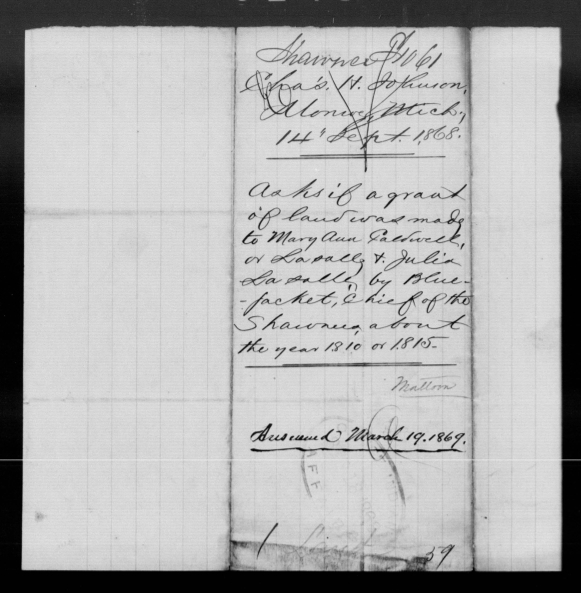 Shawnee J 1061
Chas. H. Johnson,
Monroe, Mich,
14" Sept. 1868.
Asks if a grant
of land was made
to Mary Ann Caldwell,
or Lasally & Julia
Lasalle, by Blue-
-jacket, Chief of the
Shawnees, about
the year 1810 or 1815-
Mattoon
Answered March 19. 1869.
1
59